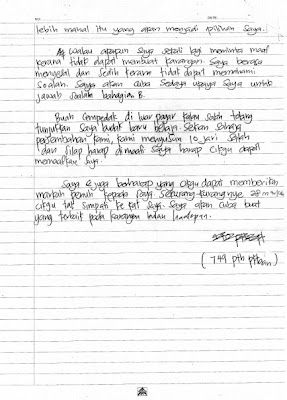 lebih mahal itu yang akan menjadi pilihan saya.
Walau apapun saya sekali lagi meminta maaf
kerana tidak dapat membuat karangan. Saya berasa
menyesal dan sedih kerana tidak dapat memahami
soalan. Saya akan cuba sedaya upaya saya untuk
jawab soalan bahagian B.
Buah cempedak di luar pagar, kalau salah tolong
tunjukkan saya budak baru belajar. Sekian sahaja
persembahan kami, kami menyusun 10 jari. Salah
dan silap harap dimaafi. Saya harap cikgu dapat
memaafkan saya.
Saya juga berharap yang cikgu dapat memberikan
markah penuh kepada saya. Sekurang-kurangnya
cikgu tak simpati ke kat saya. Saya akan cuba buat
yang terbaik pada karangan
(749 pth